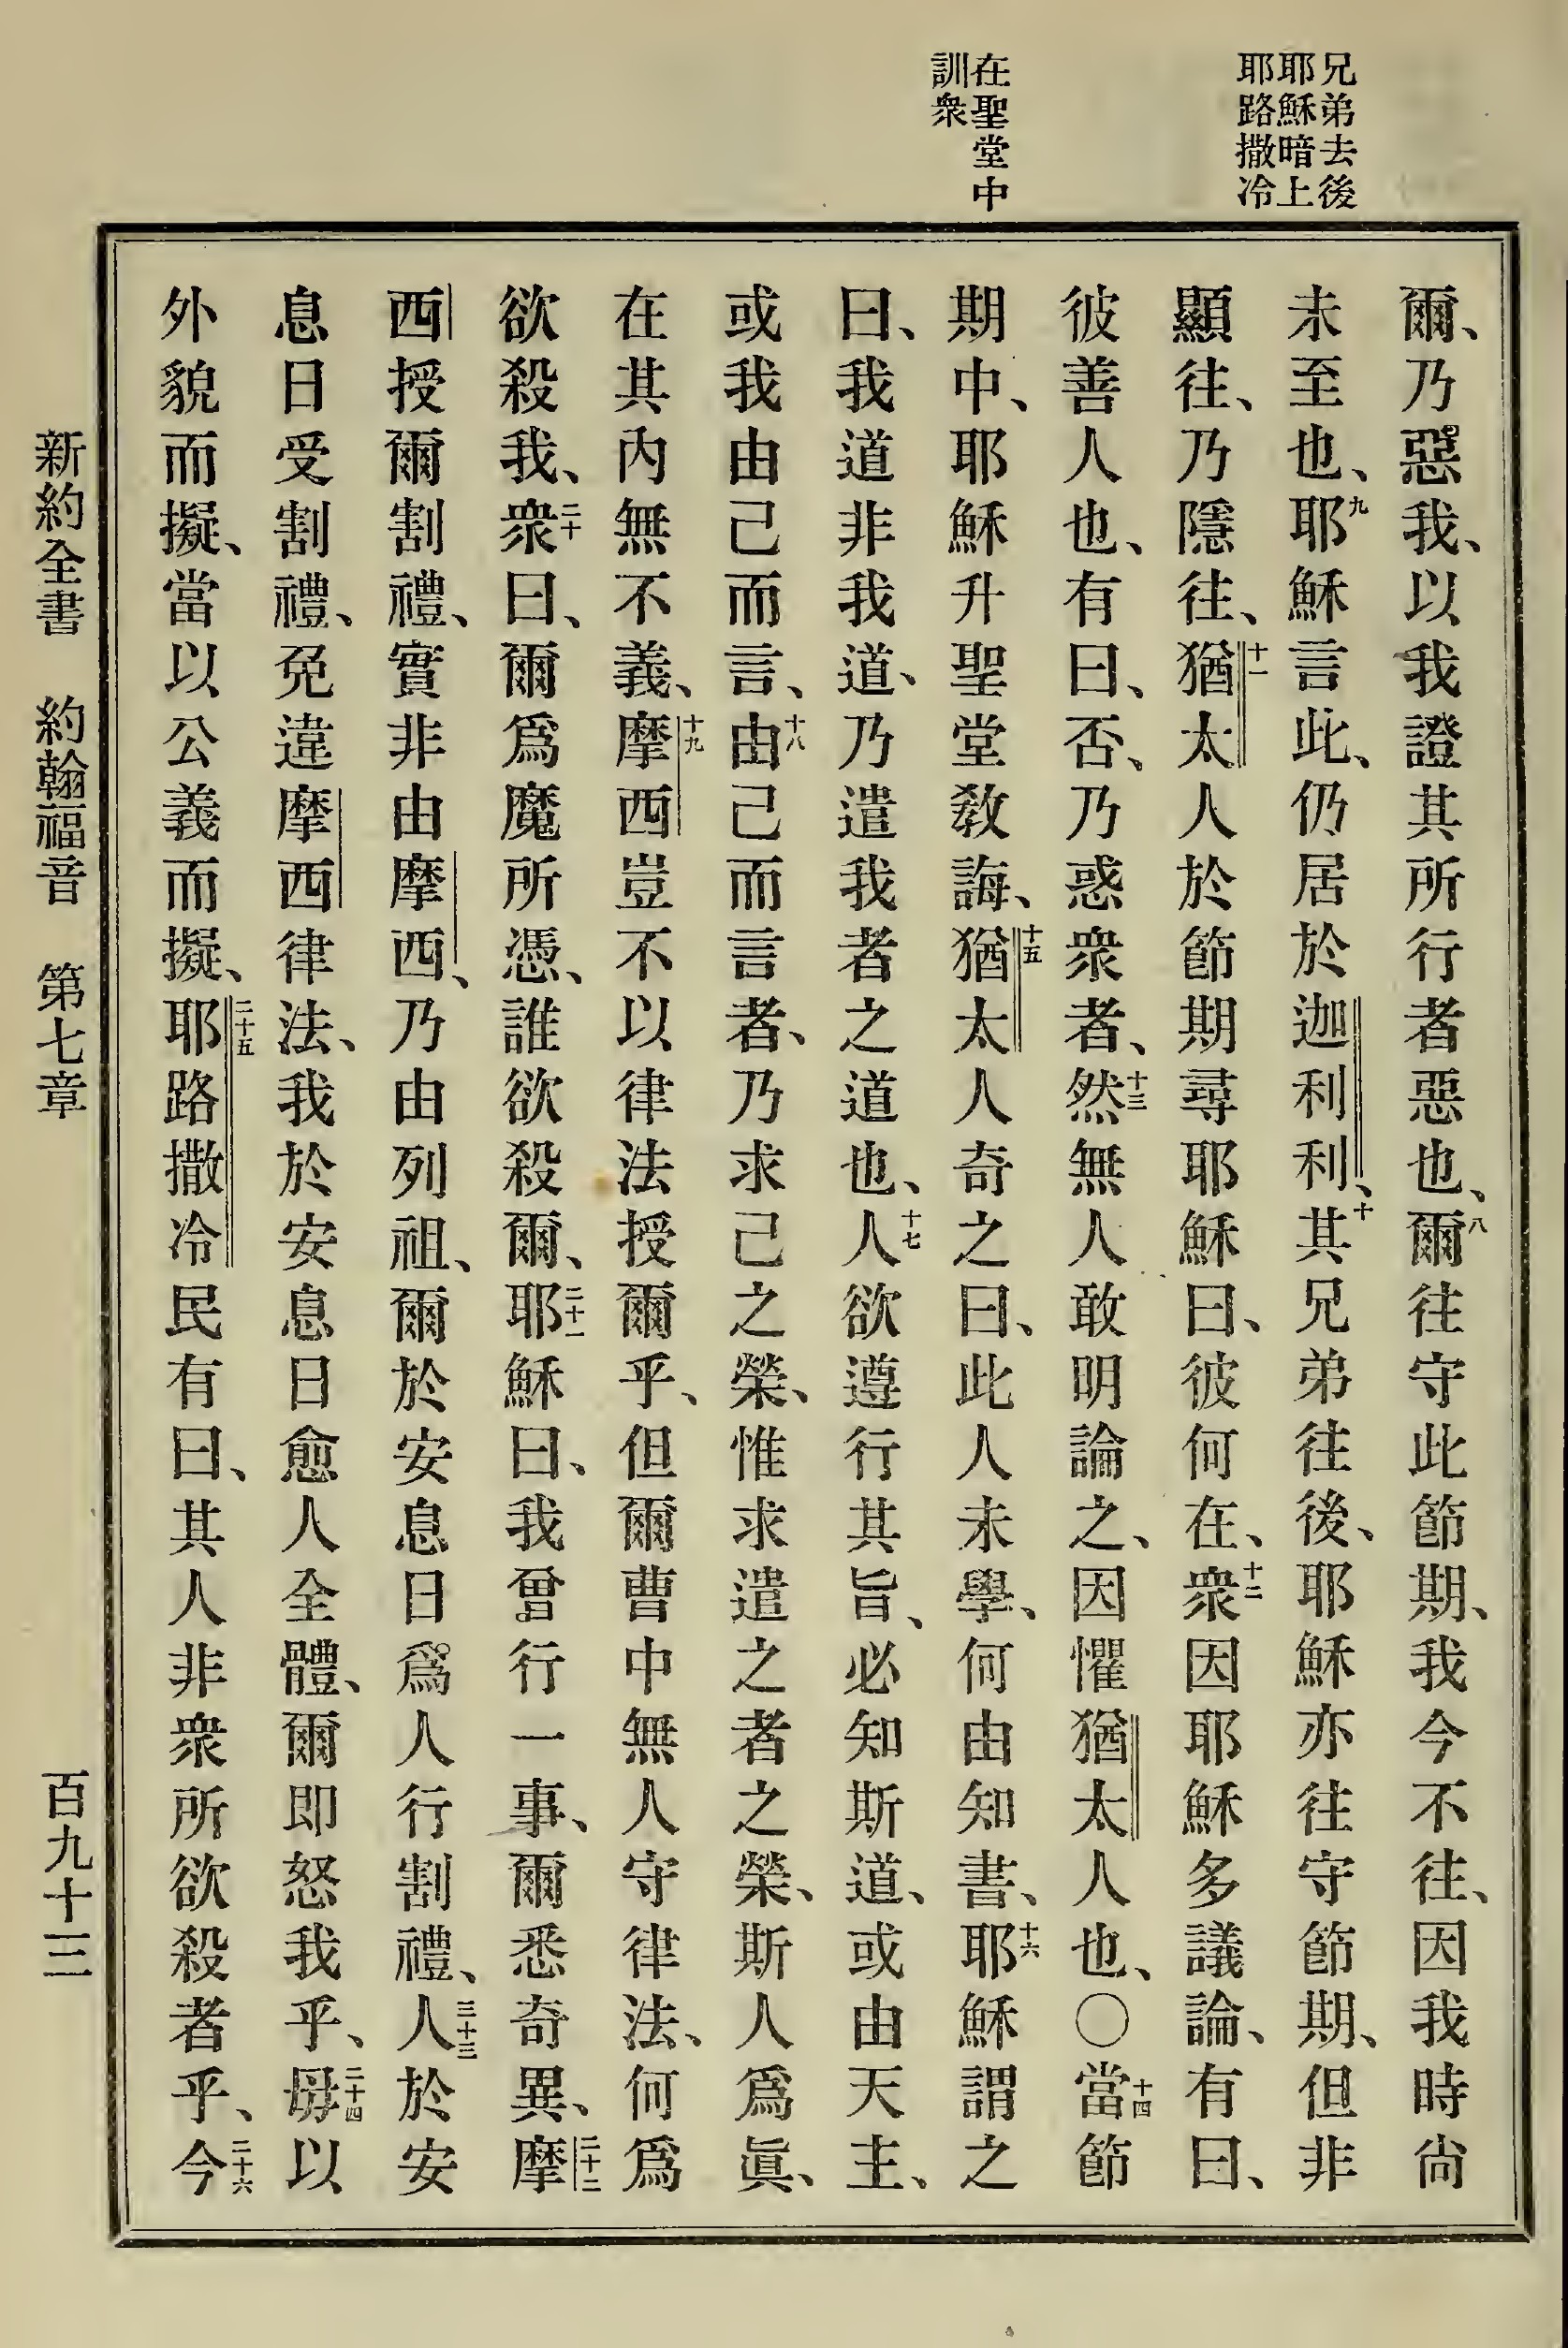 兄弟去後
耶穌暗上
耶路撒冷
在聖堂中
訓衆
爾、乃惡我、以我證其所行者惡也、八爾往守此節期、我今不往、因我時尙
未至也、九耶穌言此、仍居於迦利利、十其兄弟往後、耶穌亦往守節期、但非
顯往、乃隱往、十一猶太人於節期尋耶穌曰、彼何在、十二衆因耶穌多議論、有曰、
彼善人也、有曰、否、乃惑衆者、十三然無人敢明論之、因懼猶太人也、〇十四當節
期中、耶穌升聖堂敎誨、十五猶太人奇之曰、此人未學、何由知書、十六耶穌謂之
曰、我道非我道、乃遣我者之道也、十七人欲遵行其旨、必知斯道、或由天主、
或我由己而言、十八由己而言者、乃求己之榮、惟求遣之者之榮、斯人爲眞、
在其內無不義、十九摩西豈不以律法授爾乎、但爾曹中無人守律法、何爲
欲殺我、二十衆曰、爾爲魔所憑、誰欲殺爾、二十一耶穌曰、我曾行一事、爾悉奇異、二十二摩
西授爾割禮、實非由摩西、乃由列祖、爾於安息日爲人行割禮、二十三人於安
息日受割禮、免違摩西律法、我於安息日愈人全體、爾即怒我乎、二十四毋以
外貌而擬、當以公義而擬、二十五耶路撒冷民有曰、其人非衆所欲殺者乎、二十六今
新約全書　約翰福音　第七章　百九十三